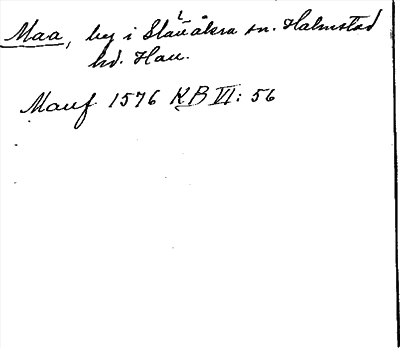 Maa, by i Slättåkra sn. Halmstad
hd. Hall.
Mauf 1576 KB VI: 56